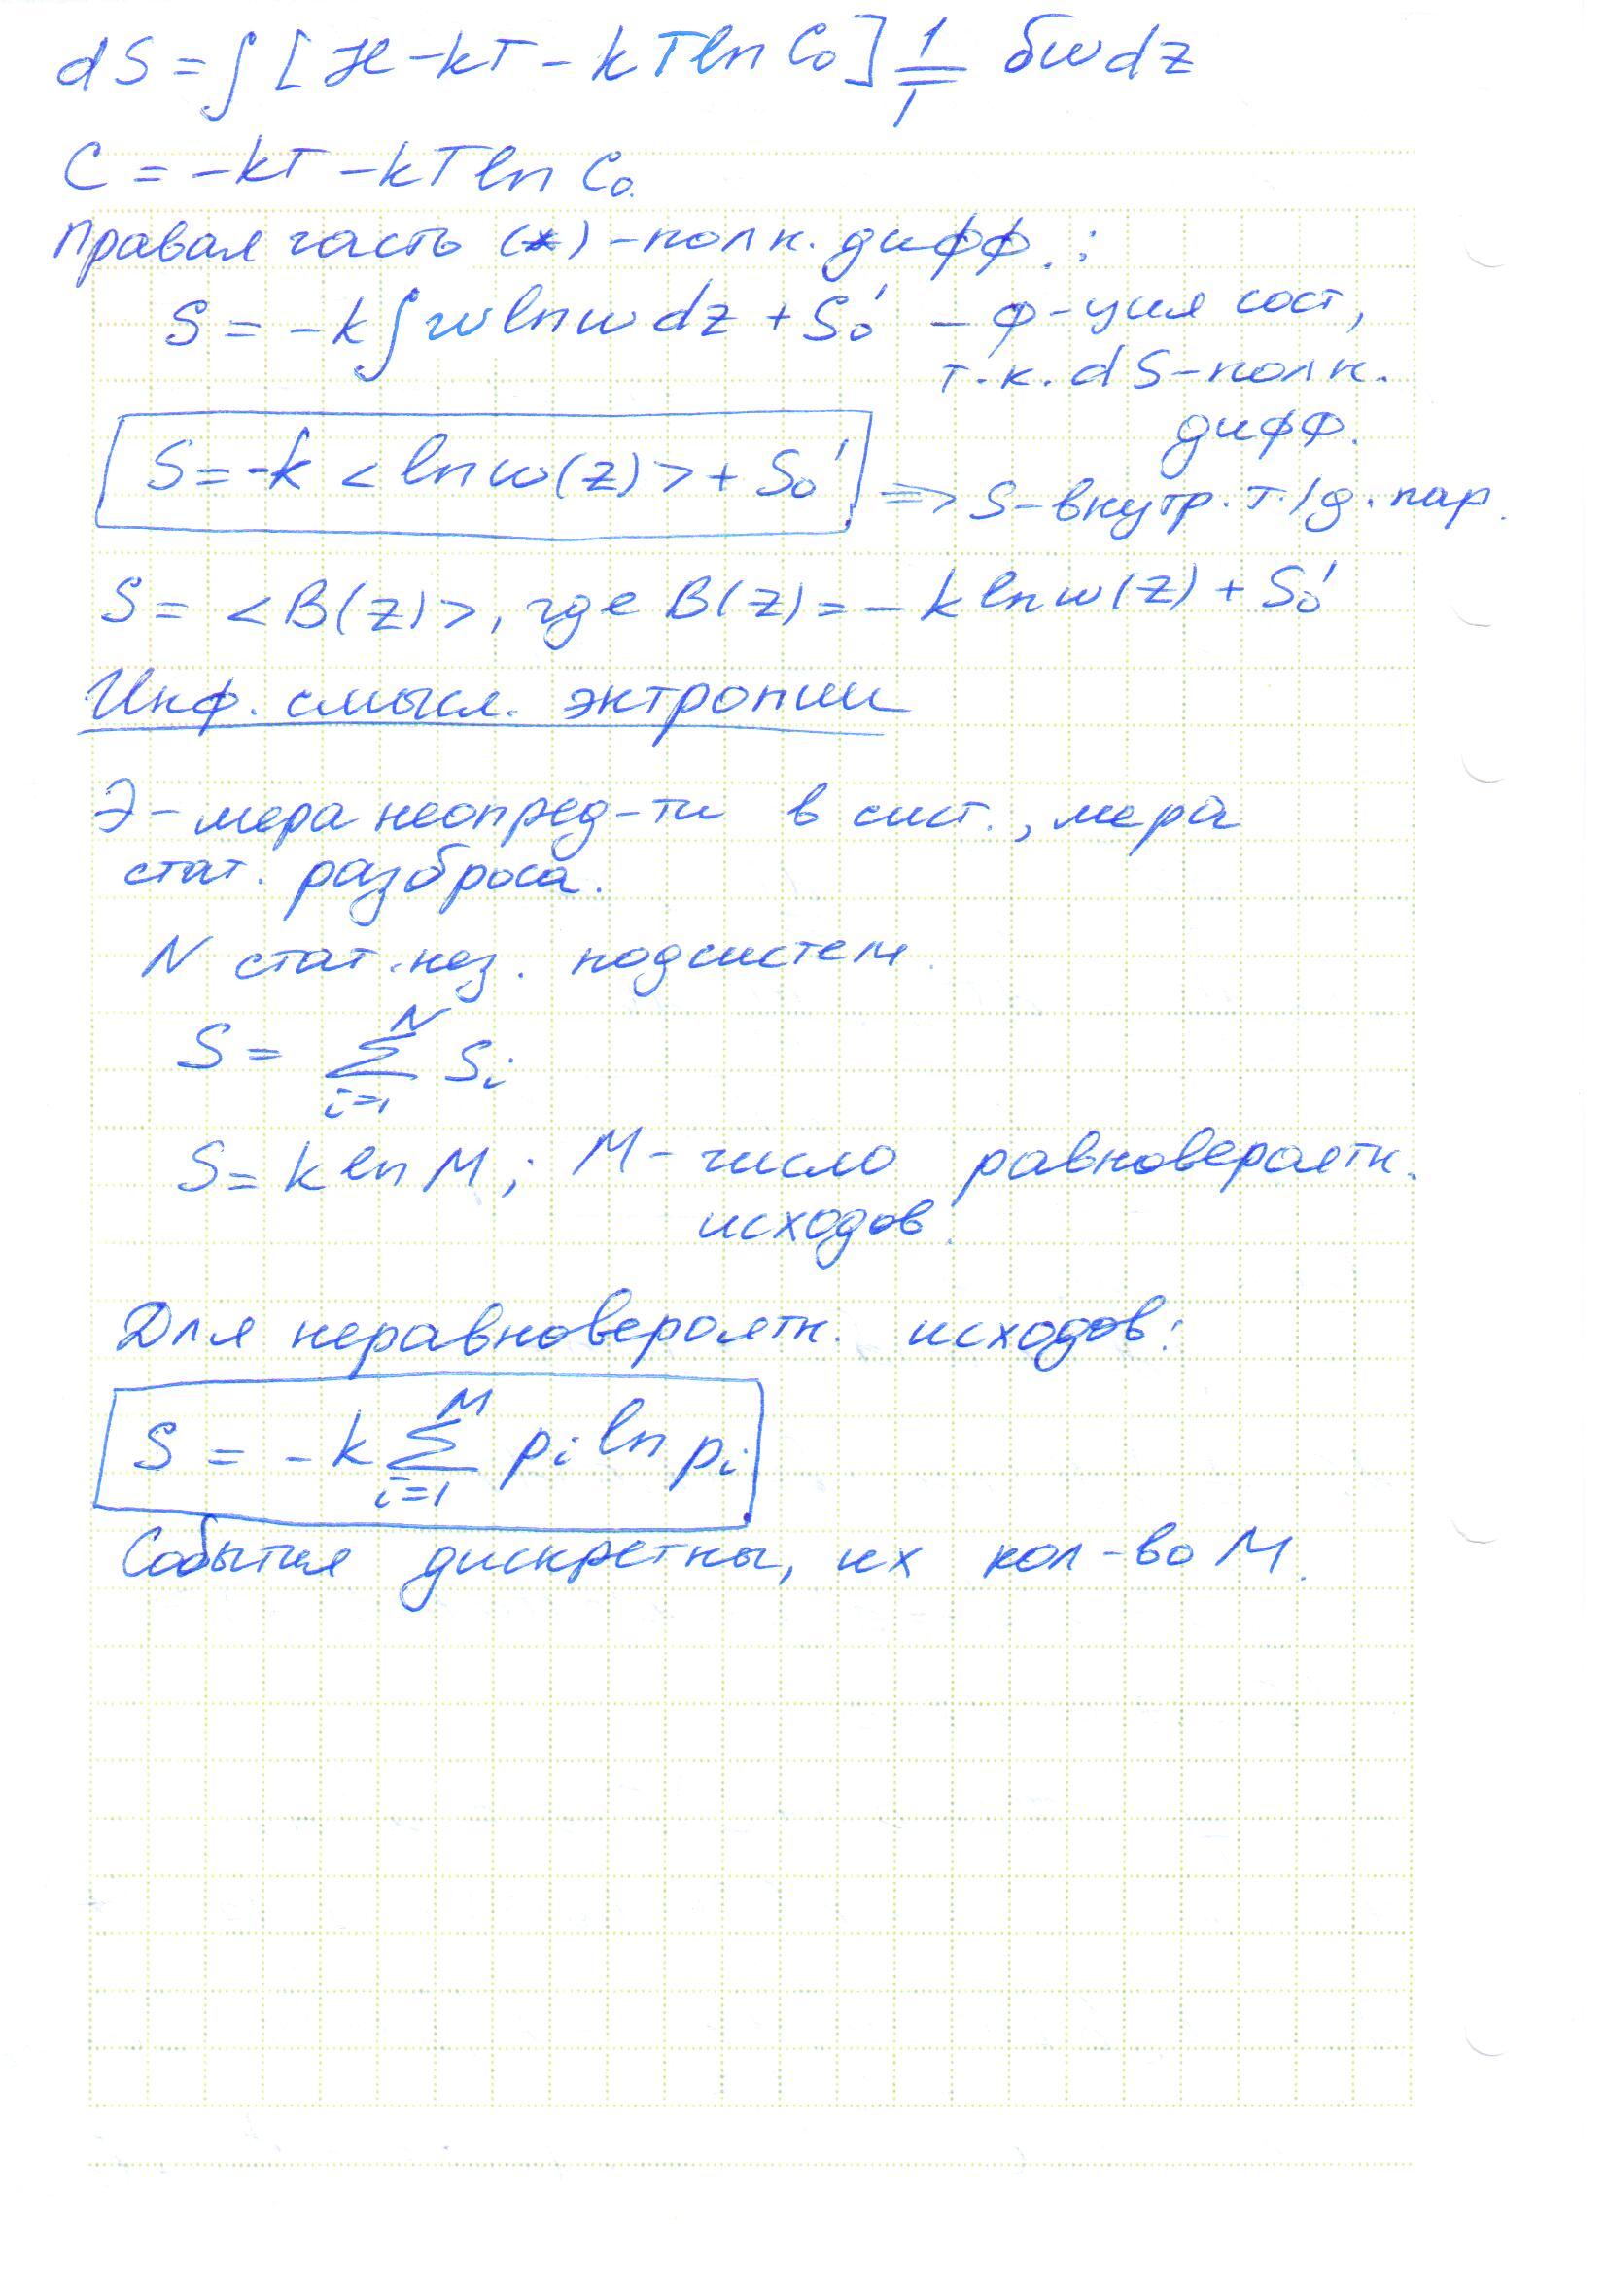 dS = ∫ [ℋ - kT - kT ln C₀] 1/T δw dz
C = -kT - kT ln C₀.
Правая часть (*) - полн. дифф.:
S = -k ∫ w ln w dz + S₀' - ф-ция сост,
т.к. dS - полн.
дифф.
S = -k <ln w(z)> + S₀' => S - внутр. т./д. пар.
S = <B(z)>, где B(z) = -k ln w(z) + S₀'
Инф. смысл. энтропии
Э - мера неопред-ти в сист., мера
стат. разброса.
N стат. нез. подсистем.
S = ∑_{i=1}^{N} S_i
S = k ln M; M - число равновероятн.
исходов.
Для неравновероятн. исходов:
S = -k ∑_{i=1}^{M} p_i ln p_i
События дискретны, их кол-во M.